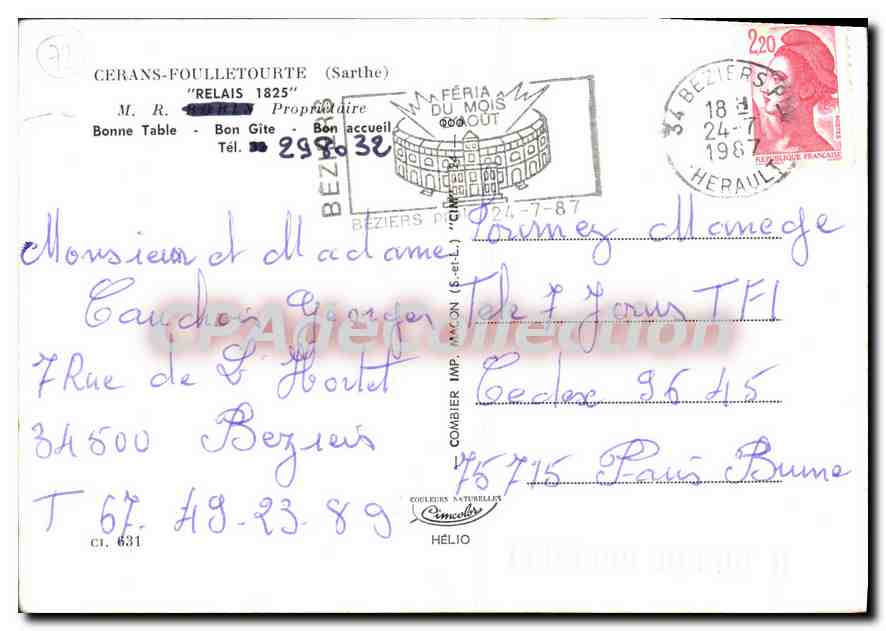 72
CERANS-FOULLETOURTE (Sarthe)
"RELAIS 1825"
M. R. Propriétaire
Bonne Table - Bon Gîte - Bon accueil
Tél. 298032
BÉZIERS
FÉRIA
DU MOIS
D'AOÛT
BEZIERS 24-7-87
34 BEZIERS
18 H
24-7
1987
HERAULT
2,20
POSTES
REPUBLIQUE FRANÇAISE
Monsieur et Madame
Cauchois Georges
7 Rue de L'Hortet
34500 Beziers
T 67. 49-23-89
Tournez Manege
Tele 7 Jours TF1
Cedex 9645
75715 Paris Brune
COMBIER IMP. MACON (S.-et-L.) "CIM"
COULEURS NATURELLES
Cimcolor
HÉLIO
CI. 631
CPAdeCollection